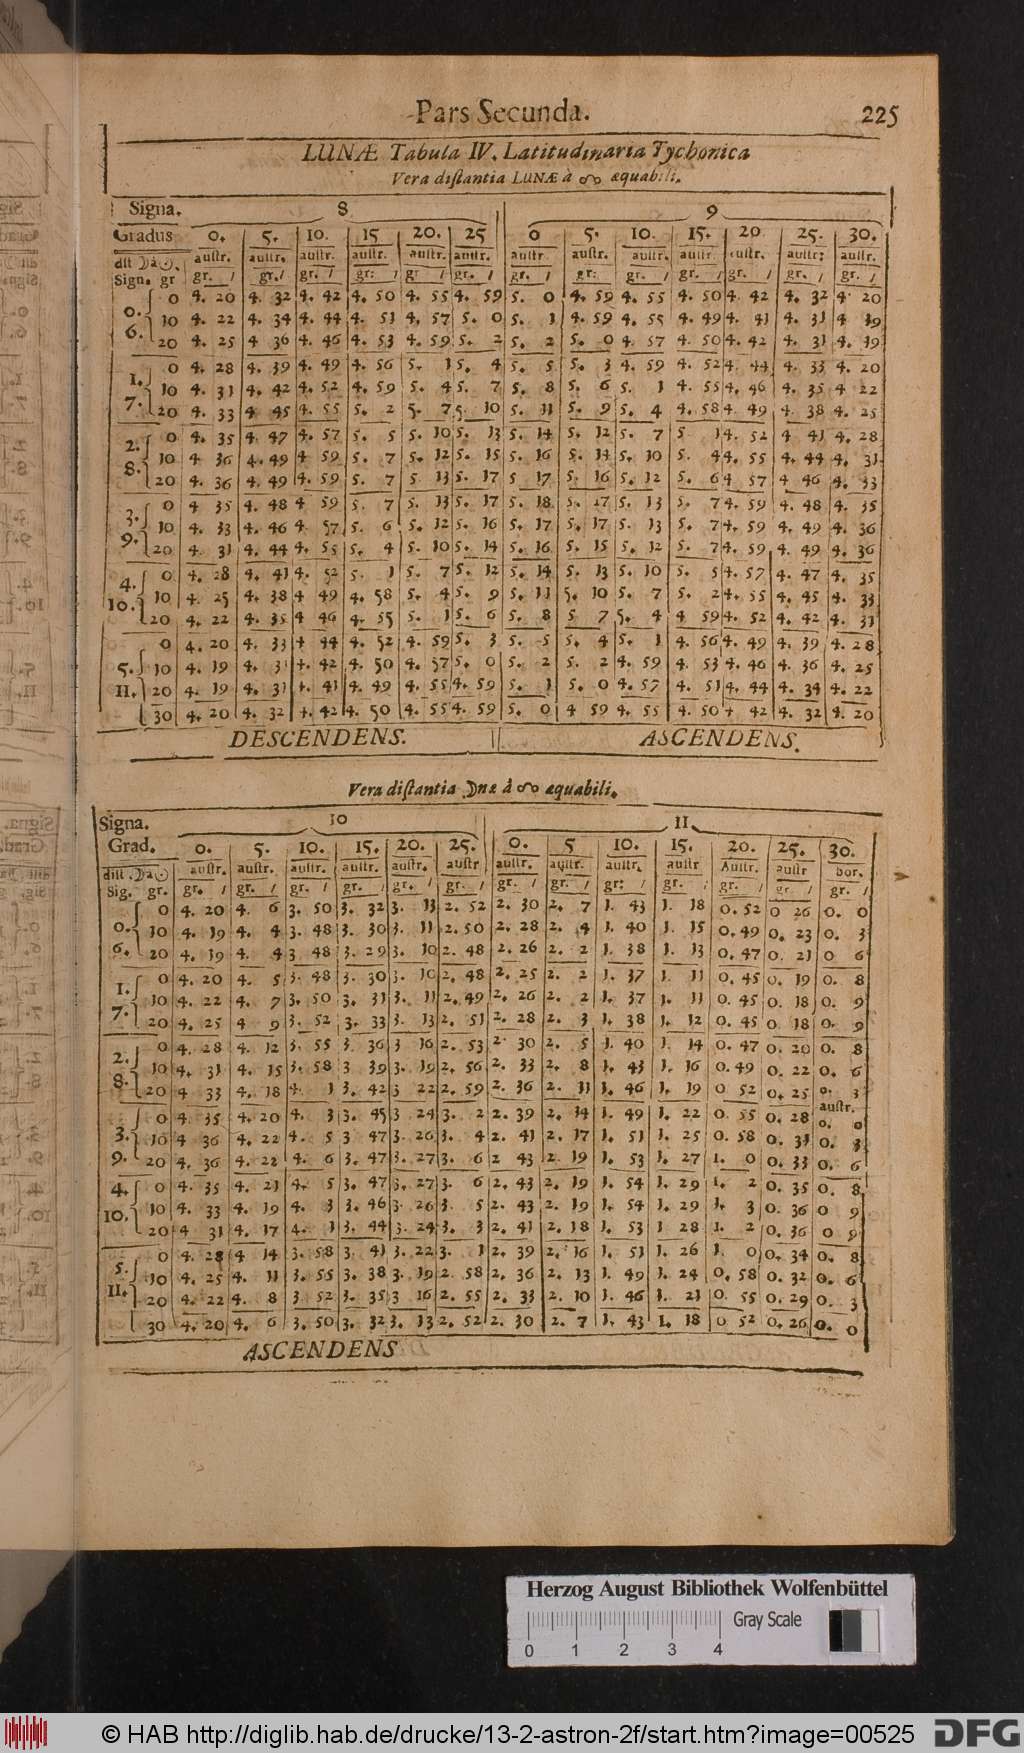 Pars Secunda. 225
LUNÆ Tabula IV. Latitudinaria Tychonica
Vera distantia LUNÆ à ☊ æquabili.
Signa. 8 9
Gradus 0. 5. 10. 15 20. 25 0 5. 10. 15. 20 25. 30.
dist ☽ à ☉. austr. austr. austr. austr. austr. austr. austr. austr. austr. austr. austr. austr: austr.
Sign. gr gr. / gr. / gr. / gr: / gr / gr. / gr. / gr: gr. / gr. / gr. / gr. / gr. /
0. 0 4. 20 4. 32 4. 42 4. 50 4. 55 4. 59 5. 0 4. 59 4. 55 4. 50 4. 42 4. 32 4. 20
10 4. 22 4. 34 4. 44 4. 51 4. 57 5. 0 5. 1 4. 59 4. 55 4. 49 4. 41 4. 31 4 19
6. 20 4. 25 4 36 4. 46 4. 53 4. 59 5. 2 5. 2 5. 0 4. 57 4. 50 4. 42 4. 31 4. 19
1. 0 4. 28 4. 39 4. 49 4. 56 5. 1 5. 4 5. 5 5. 3 4. 59 4. 52 4. 44 4. 33 4. 20
10 4. 31 4. 42 4. 52 4. 59 5. 4 5. 7 5. 8 5. 6 5. 1 4. 55 4. 46 4. 35 4 22
7. 20 4. 33 4 45 4. 55 5. 2 5. 7 5. 10 5. 11 5. 9 5. 4 4. 58 4 49 4. 38 4. 25
2. 0 4. 35 4. 47 4. 57 5. 5 5. 10 5. 13 5. 14 5. 12 5. 7 5 1 4. 52 4 41 4. 28
8. 10 4 36 4. 49 4 59 5. 7 5. 12 5. 15 5. 16 5. 14 5. 10 5. 4 4. 55 4. 44 4. 31
20 4. 36 4. 49 4. 59 5. 7 5 13 5. 17 5 17 5. 16 5. 12 5. 6 4 57 4 46 4. 33
3. 0 4 35 4. 48 4 59 5. 7 5. 13 5. 17 5. 18 5. 17 5. 13 5. 7 4. 59 4. 48 4. 35
10 4. 33 4. 46 4. 57 5. 6 5. 12 5. 16 5. 17 5. 17 5. 13 5. 7 4. 59 4. 49 4. 36
9. 20 4. 31 4. 44 4. 55 5. 4 5. 10 5. 14 5. 16 5. 15 5. 12 5. 7 4. 59 4. 49 4. 36
4. 0 4. 28 4. 41 4. 52 5. 1 5. 7 5. 12 5. 14 5. 13 5. 10 5. 5 4. 57 4. 47 4. 35
10. 10 4. 25 4. 38 4 49 4. 58 5. 4 5. 9 5. 11 5. 10 5. 7 5. 2 4. 55 4. 45 4. 33
20 4. 22 4. 35 4 46 4. 55 5. 1 5. 6 5. 8 5 7 5. 4 4 59 4. 52 4. 42 4. 31
0 4. 20 4. 33 4 44 4. 52 4. 59 5. 3 5. 5 5. 4 5. 1 4. 56 4. 49 4. 39 4. 28
5. 10 4. 19 4. 3 4. 42 4. 50 4. 57 5. 0 5. 2 5. 2 4. 59 4. 53 4. 46 4. 36 4. 25
11. 20 4. 19 4. 31 4. 41 4. 49 4. 55 4. 59 5. 1 5. 0 4. 57 4. 51 4. 44 4. 34 4. 22
30 4. 20 4. 32 4. 42 4. 50 4. 55 4. 59 5. 0 4 59 4. 55 4. 50 4 42 4. 32 4. 20
DESCENDENS. ASCENDENS.
Vera distantia ☽næ à ☊ æquabili.
Signa. 10 11
Grad. 0. 5. 10. 15. 20. 25. 0. 5 10. 15. 20. 25. 30.
dist. ☽ à ☉ austr. austr. austr. austr. austr. austr austr. austr. austr. austr Austr. austr bor.
Sig. gr. gr. / gr. / gr. / gr. / gr. / gr. / gr. / gr. / gr: / gr. / gr. / gr. / gr. /
0. 0 4. 20 4. 6 3. 50 3. 32 3. 13 2. 52 2. 30 2. 7 1. 43 1. 18 0. 52 0 26 0. 0
10 4. 19 4. 4 3. 48 3. 30 3. 11 2. 50 2. 28 2. 4 1. 40 1. 15 0. 49 0. 23 0. 3
6. 20 4. 19 4. 4 3 48 3. 29 3. 10 2. 48 2. 26 2. 2 1. 38 1. 13 0. 47 0. 21 0 6
1. 0 4. 20 4. 5 3. 48 3. 30 3. 10 2. 48 2. 25 2. 2 1. 37 1. 11 0. 45 0. 19 0. 8
10 4. 22 4. 7 3. 50 3. 31 3. 11 2. 49 2. 26 2. 2 1. 37 1. 11 0. 45 0. 18 0. 9
7. 20 4. 25 4 9 3. 52 3. 33 3. 13 2. 51 2. 28 2. 3 1. 38 1. 12 0. 45 0. 18 0. 9
2. 0 4. 28 4. 12 3. 55 3. 36 3 16 2. 53 2. 30 2. 5 1. 40 1. 14 0. 47 0. 20 0. 8
8. 10 4. 31 4. 15 3. 58 3 39 3. 19 2. 56 2. 33 2. 8 1. 43 1. 16 0. 49 0. 22 0. 6
20 4 33 4. 18 4. 1 3. 42 3 22 2. 59 2. 36 2. 11 1. 46 1. 19 0 52 0. 25 0. 3
austr.
3. 0 4. 35 4. 20 4. 3 3. 45 3 24 3. 2 2. 39 2. 14 1. 49 1. 22 0. 55 0. 28 0. 0
10 4 36 4. 22 4. 5 3 47 3. 26 3. 4 2. 41 2. 17 1. 51 1. 25 0. 58 0. 31 0. 3
9. 20 4. 36 4. 22 4. 6 3. 47 3. 27 3. 6 2 43 2 19 1. 53 1. 27 1. 0 0. 33 0. 6
4. 0 4. 35 4. 21 4. 5 3. 47 3. 27 3. 6 2. 43 2. 19 1. 54 1. 29 1. 2 0. 35 0. 8
10. 10 4. 33 4. 19 4. 3 3. 46 3. 26 3. 5 2. 43 2. 19 1. 54 1. 29 1. 3 0. 36 0 9
20 4 31 4. 17 4. 1 3. 44 3. 24 3. 3 2. 41 2. 18 1. 53 1 28 1. 2 0. 36 0 9
5. 0 4. 28 4 14 3. 58 3 41 3. 22 3. 1 2. 39 2. 16 1. 51 1. 26 1. 0 0. 34 0. 8
10 4. 25 4. 11 3. 55 3. 38 3. 19 2 58 2. 36 2. 13 1. 49 1. 24 0. 58 0. 32 0. 6
11. 20 4. 22 4. 8 3. 52 3. 35 3 16 2. 55 2. 33 2. 10 1. 46 1. 21 0. 55 0. 29 0. 3
30 4. 20 4. 6 3. 50 3. 32 3. 13 2. 52 2. 30 2. 7 1. 43 1. 18 0 52 0. 26 0. 0
ASCENDENS
Herzog August Bibliothek Wolfenbüttel
Gray Scale
0 1 2 3 4
© HAB http://diglib.hab.de/drucke/13-2-astron-2f/start.htm?image=00525 DFG